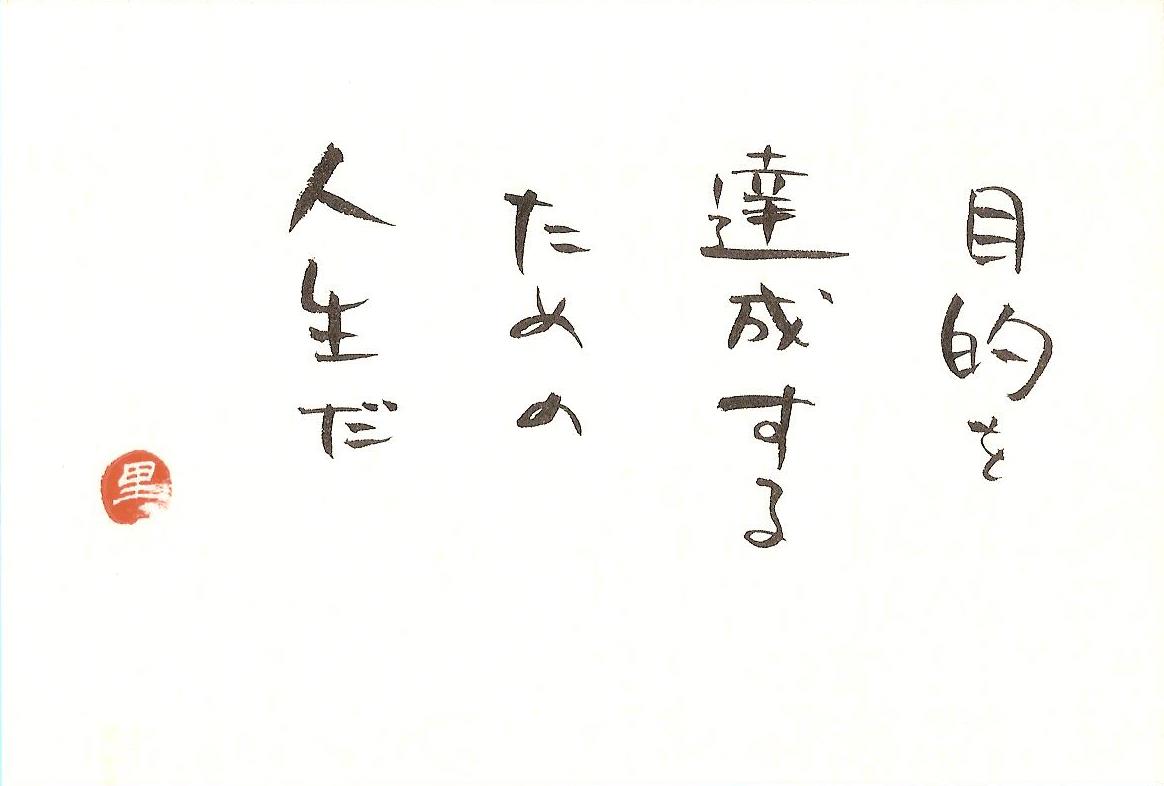 目的を
達成する
ための
人生だ
里